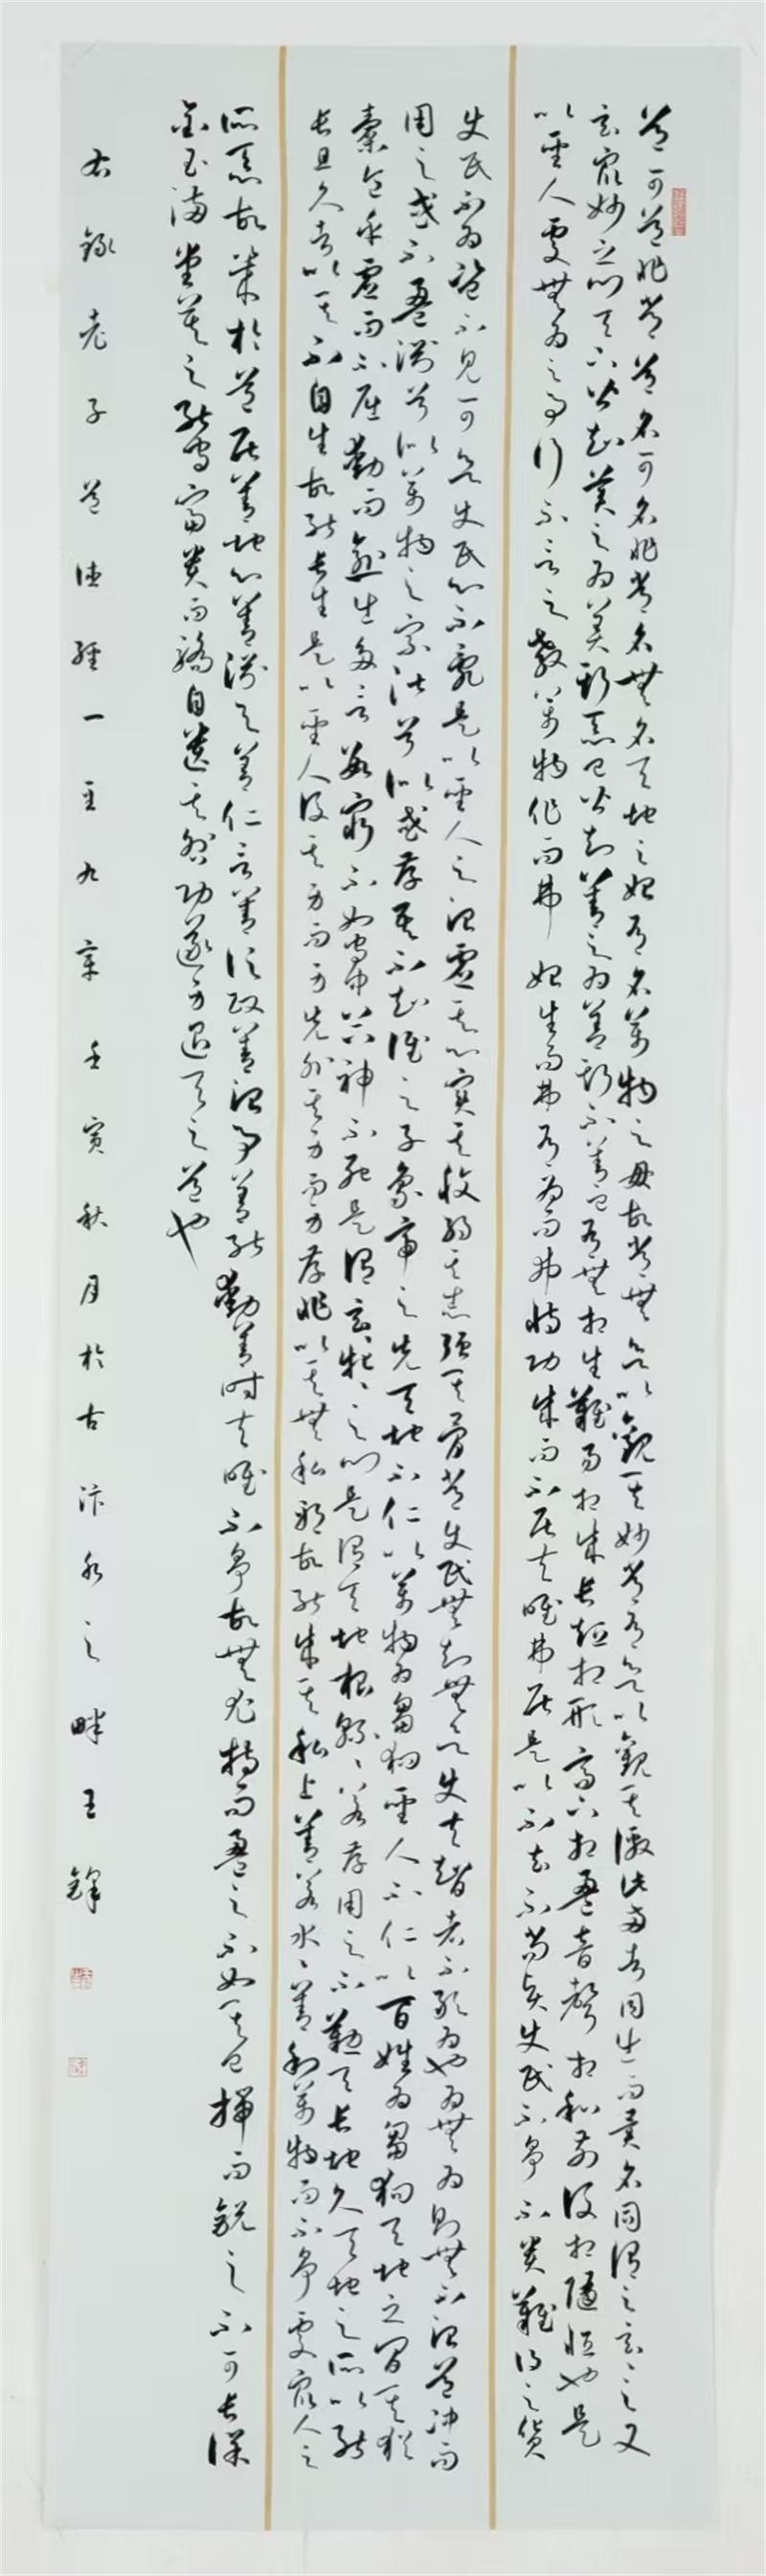 道可道非常道名可名非常名無名天地之始有名萬物之母故常無欲以觀其妙常有欲以觀其徼此兩者同出而異名同謂之玄玄之又
玄眾妙之門天下皆知美之為美斯惡已皆知善之為善斯不善已有無相生難易相成長短相形高下相盈音聲相和前後相隨恒也是
以聖人處無為之事行不言之教萬物作而弗始生而弗有為而弗恃功成而不居夫唯弗居是以不去不尚賢使民不爭不貴難得之貨
使民不為盜不見可欲使民心不亂是以聖人之治虛其心實其腹弱其志強其骨常使民無知無欲使夫智者不敢為也為無為則無不治道沖而
用之或不盈淵兮似萬物之宗湛兮似或存吾不知誰之子象帝之先天地不仁以萬物為芻狗聖人不仁以百姓為芻狗天地之間其猶
橐龠乎虛而不屈動而愈出多言數窮不如守中谷神不死是謂玄牝、之門是謂天地根綿、若存用之不勤天長地久天地之所以能
長且久者以其不自生故能長生是以聖人後其身而身先外其身而身存非以其無私邪故能成其私上善若水、善利萬物而不爭處眾人之
所惡故幾於道居善地心善淵與善仁言善信政善治事善能動善時夫唯不爭故無尤持而盈之不如其已揣而銳之不可長保
金玉滿堂莫之能守富貴而驕自遺其咎功遂身退天之道也
右錄老子道德經一至九章壬寅秋月於古汴水之畔王鋒